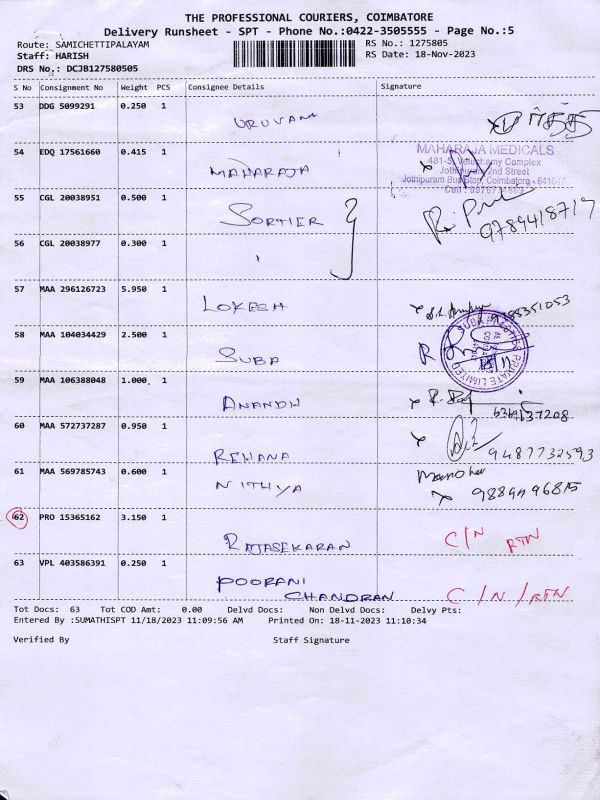 THE PROFESSIONAL COURIERS, COIMBATORE
Delivery Runsheet - SPT - Phone No.:0422-3505555 - Page No.:5
Route: SAMICHETTIPALAYAM
RS No.: 1275805
Staff: HARISH
RS Date: 18-Nov-2023
DRS No.: DCJB127580505
S No Consignment No Weight PCS Consignee Details Signature
53 DDG 5099291 0.250 1 URUVAM
54 EDQ 17561660 0.415 1 MAHARAJA
MAHARAJA MEDICALS
481-5, Veluchamy Complex
Jothipuram 2nd Street
Jothipuram Bus Stop, Coimbatore - 641047
55 CGL 20038951 0.500 1 SORTIER
56 CGL 20038977 0.300 1
57 MAA 296126723 5.950 1 LOKESH
58 MAA 104034429 2.500 1 SUBA
SUBA PLASTICS PRIVATE LIMITED
59 MAA 106388048 1.000 1 ANANDH
60 MAA 572737287 0.950 1 REHANA 9487732593
61 MAA 569785743 0.600 1 NITHYA
62 PRO 15365162 3.150 1 RAJASEKARAN C/N RTN
63 VPL 403586391 0.250 1 POORANI
CHANDRAN C/N/RTN
Tot Docs: 63 Tot COD Amt: 0.00 Delvd Docs: Non Delvd Docs: Delvy Pts:
Entered By :SUMATHISPT 11/18/2023 11:09:56 AM Printed On: 18-11-2023 11:10:34
Verified By Staff Signature